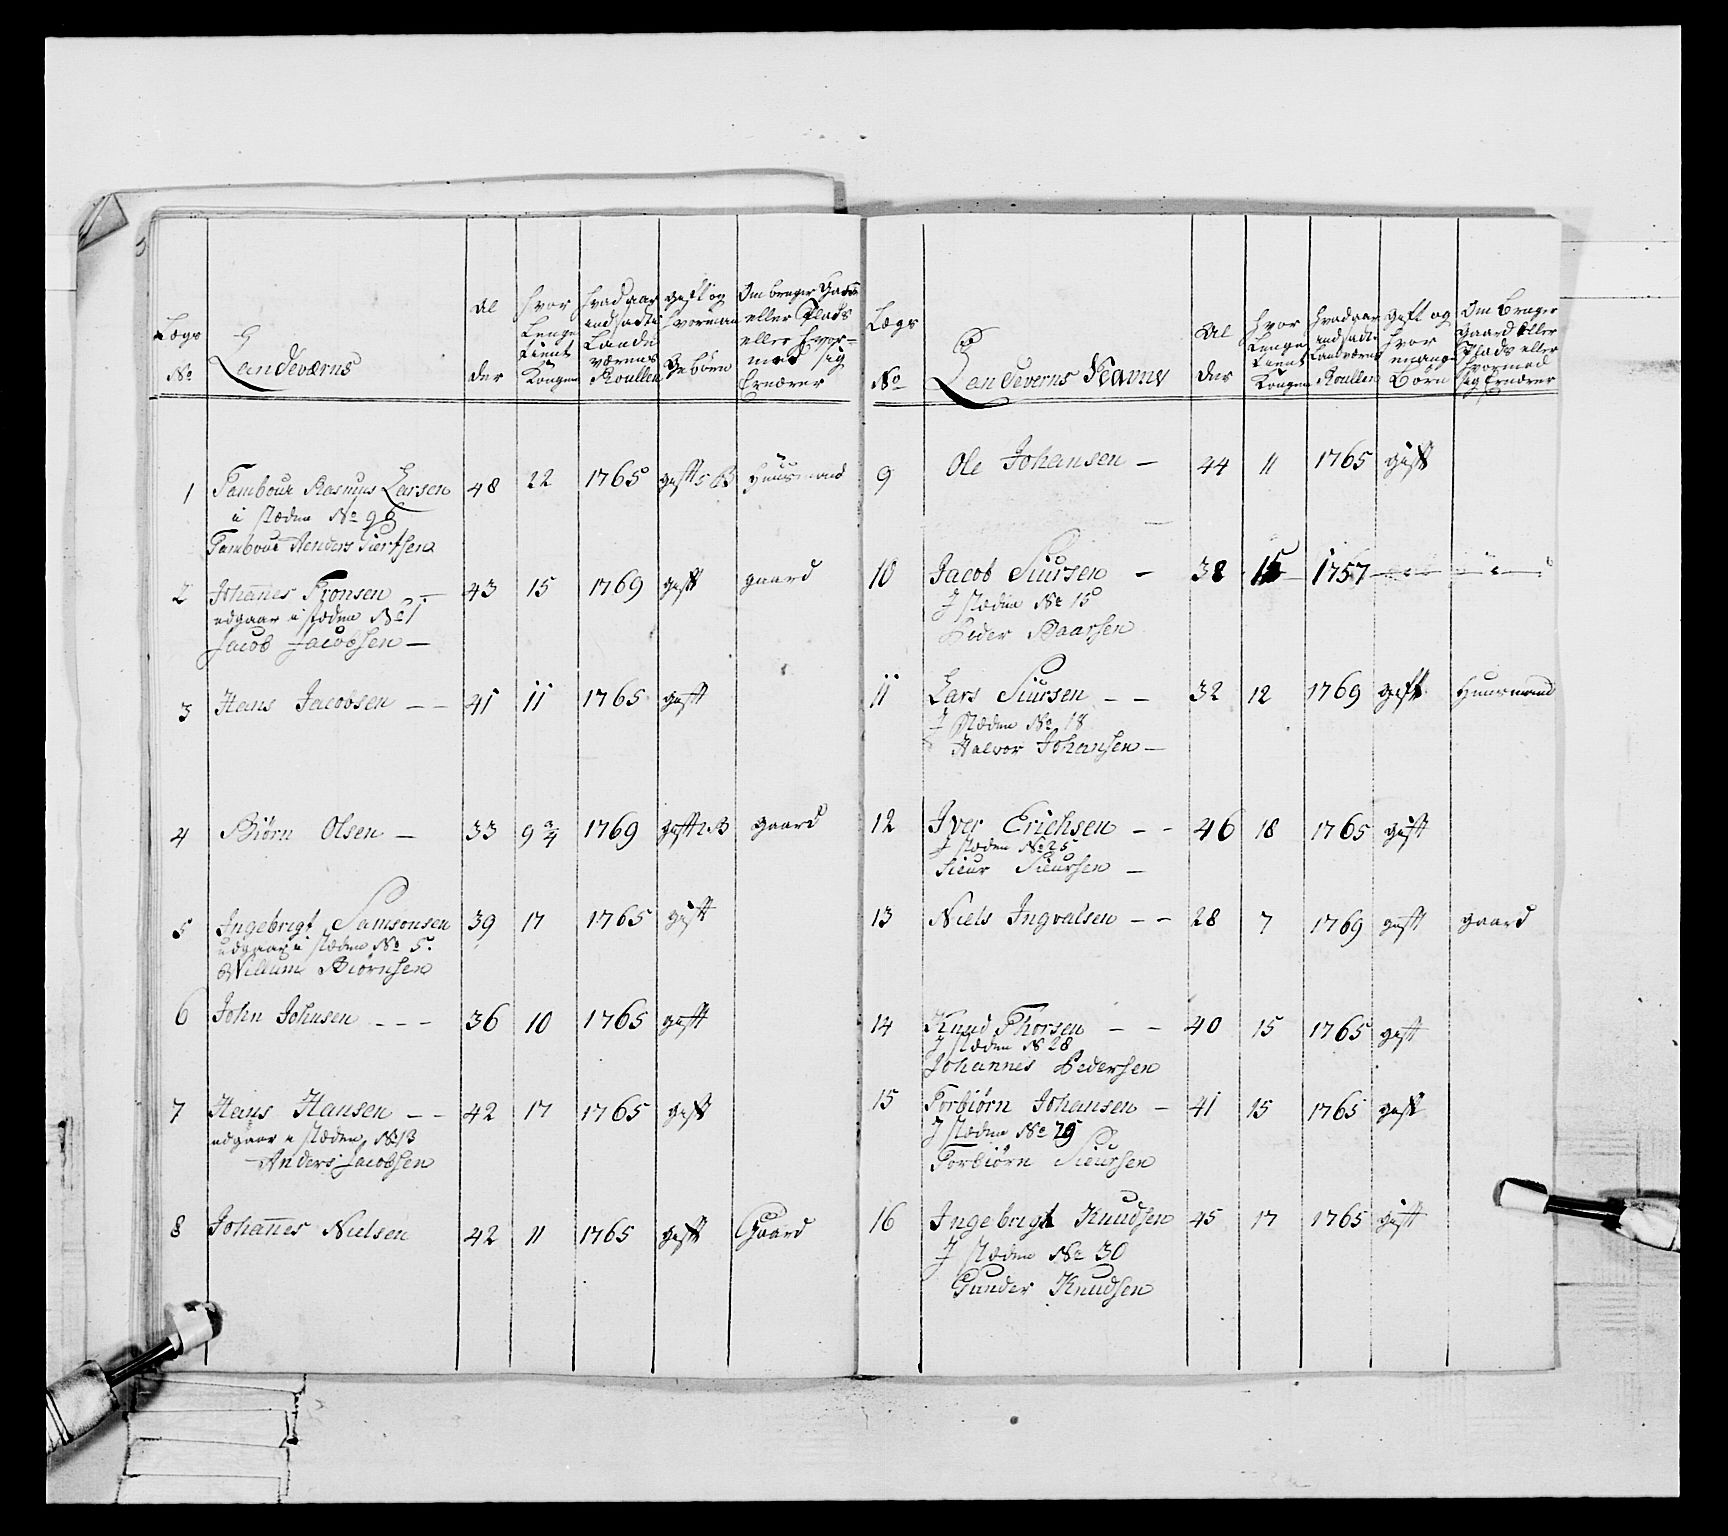 Lægs
No
Landeværns
Al
der
hvor
Lenge
tient
Kongen
hvad aar
indsadt i
Lande
værens
Roullen
gift og
hvorman
ge børn
Om bruger Gaard
eller Plads
eller hvor-
med sig
Ernærer
1 Tambour Rasmus Larsen 48 22 1765 gift 5 B Huusmand
i stæden No 96
Tambour Anders Siursen
2 Johannes Tronsen — 43 15 1769 gift gaard
udgaar i stæden No 1
Jacob Jacobsen —
3 Hans Jacobsen — — 41 11 1765 gift
4 Biørn Olsen — 33 9 3/4 1769 gift 2 B gaard
5 Ingebrigt Samsonsen 39 17 1765 gift
udgaar i stæden No 5.
Willum Biørnsen
6 John Johnsen - - - 36 10 1765 gift
7 Hans Hansen — — 42 17 1765 gift
udgaar i stæden No 13
Anders Jacobsen
8 Johannes Nielsen 42 11 1765 gift Gaard
Lægs
No
Landeverns Navne
Al
der
hvor
Lenge
tient
Kongen
hvad aar
indsadt i
Landværns
Roullen
gift og
hvor
mange
Børn
Om Bruger
Gaard Eller
Plads eller
hvormed
sig Ernærer
9 Ole Johansen — 44 11 1765 gift
10 Jacob Siursen — 38 15 1757
I stæden No 15
Peder Baarsen
11 Lars Siursen — — 32 12 1769 gift Huusmand
I stæden No 18
Halvor Johansen —
12 Iver Erichsen — - 46 18 1765 gift
I stæden No 25
Sieur Sieursen —
13 Niels Ingvalsen — - 28 7 1769 gift gaard
14 Knud Thorsen — — 40 15 1765 gift
I stæden No 28
Johannes Pedersen
15 Torbiørn Johansen — 41 15 1765 gift
I stæden No 29
Torbiørn Sieursen
16 Ingebrigt Knudsen 45 17 1765 gift
I stæden No 30
Gunder Knudsen